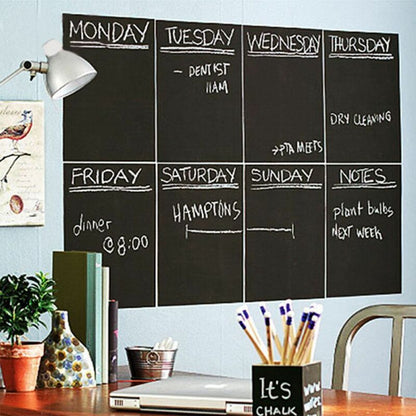 MONDAY
TUESDAY
- DENTIST
11AM
WEDNESDAY
→PTA MEETS
THURSDAY
DRY CLEANING
FRIDAY
dinner
@8:00
SATURDAY
HAMPTONS
SUNDAY
NOTES
plant bulbs
NEXT WEEK
IT'S
CHALK